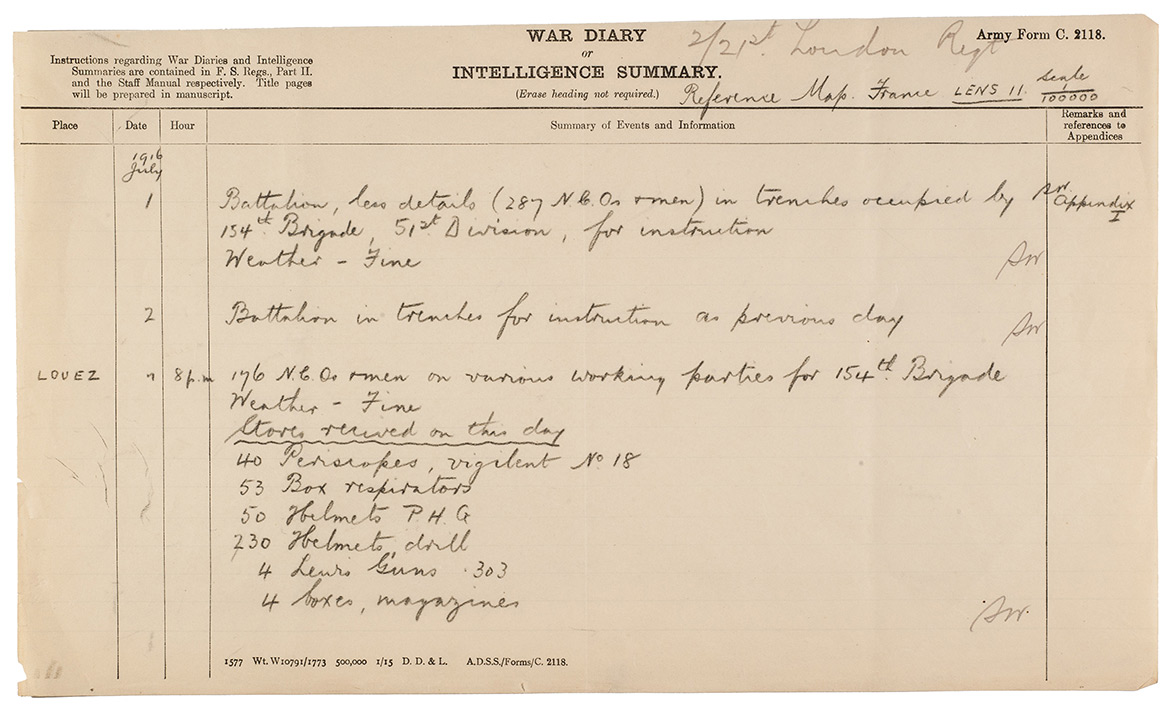 WAR DIARY
or
INTELLIGENCE SUMMARY.
(Erase heading not required.)
2/21st. London Regt
Army Form C. 2118.
Instructions regarding War Diaries and Intelligence
Summaries are contained in F. S. Regs., Part II.
and the Staff Manual respectively. Title pages
will be prepared in manuscript.
Reference Map. France LENS 11. scale
1
100000
Place Date Hour Summary of Events and Information Remarks and
references to
Appendices
1916
July
1 Battalion, less details (287 N.C.Os & men) in trenches occupied by
Appendix
I
154th Brigade, 51st Division, for instruction
Weather - Fine
SW
2 Battalion in trenches for instruction as previous day
SW
LOUEZ " 8 p.m 176 N.C.Os & men on various working parties for 154th. Brigade
Weather - Fine
Stores recived on this day
40 Periscopes, vigilent No 18
53 Box respirators
50 Helmets P.H.G
230 Helmets, drill
4 Lewis Guns .303
4 boxes, magazines
SW.
1577 Wt. W10791/1773 500,000 1/15 D. D. & L. A.D.S.S./Forms/C. 2118.